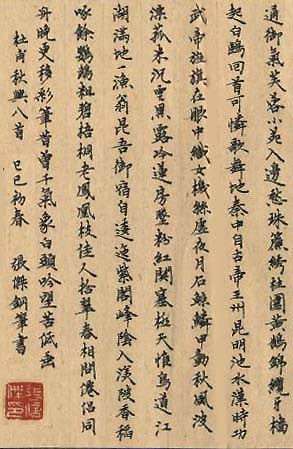 通御氣芙蓉小苑入邊愁珠簾綉柱圍黄鵠錦纜牙檣
起白鷗回首可憐歌舞地秦中自古帝王州昆明池水漢時功
武帝旌旗在眼中織女機絲虛夜月石鯨鱗甲動秋風波
漂菰米沉雲黑露冷蓮房墜粉紅關塞極天惟鳥道江
湖滿地一漁翁昆吾御宿自逶迤紫閣峰陰入渼陂香稻
啄餘鸚鵡粒碧梧栖老鳳凰枝佳人拾翠春相問僊侶同
舟晚更移彩筆昔曾干氣象白頭吟望苦低垂
杜甫秋興八首 己巳初春 張傑鋼筆書